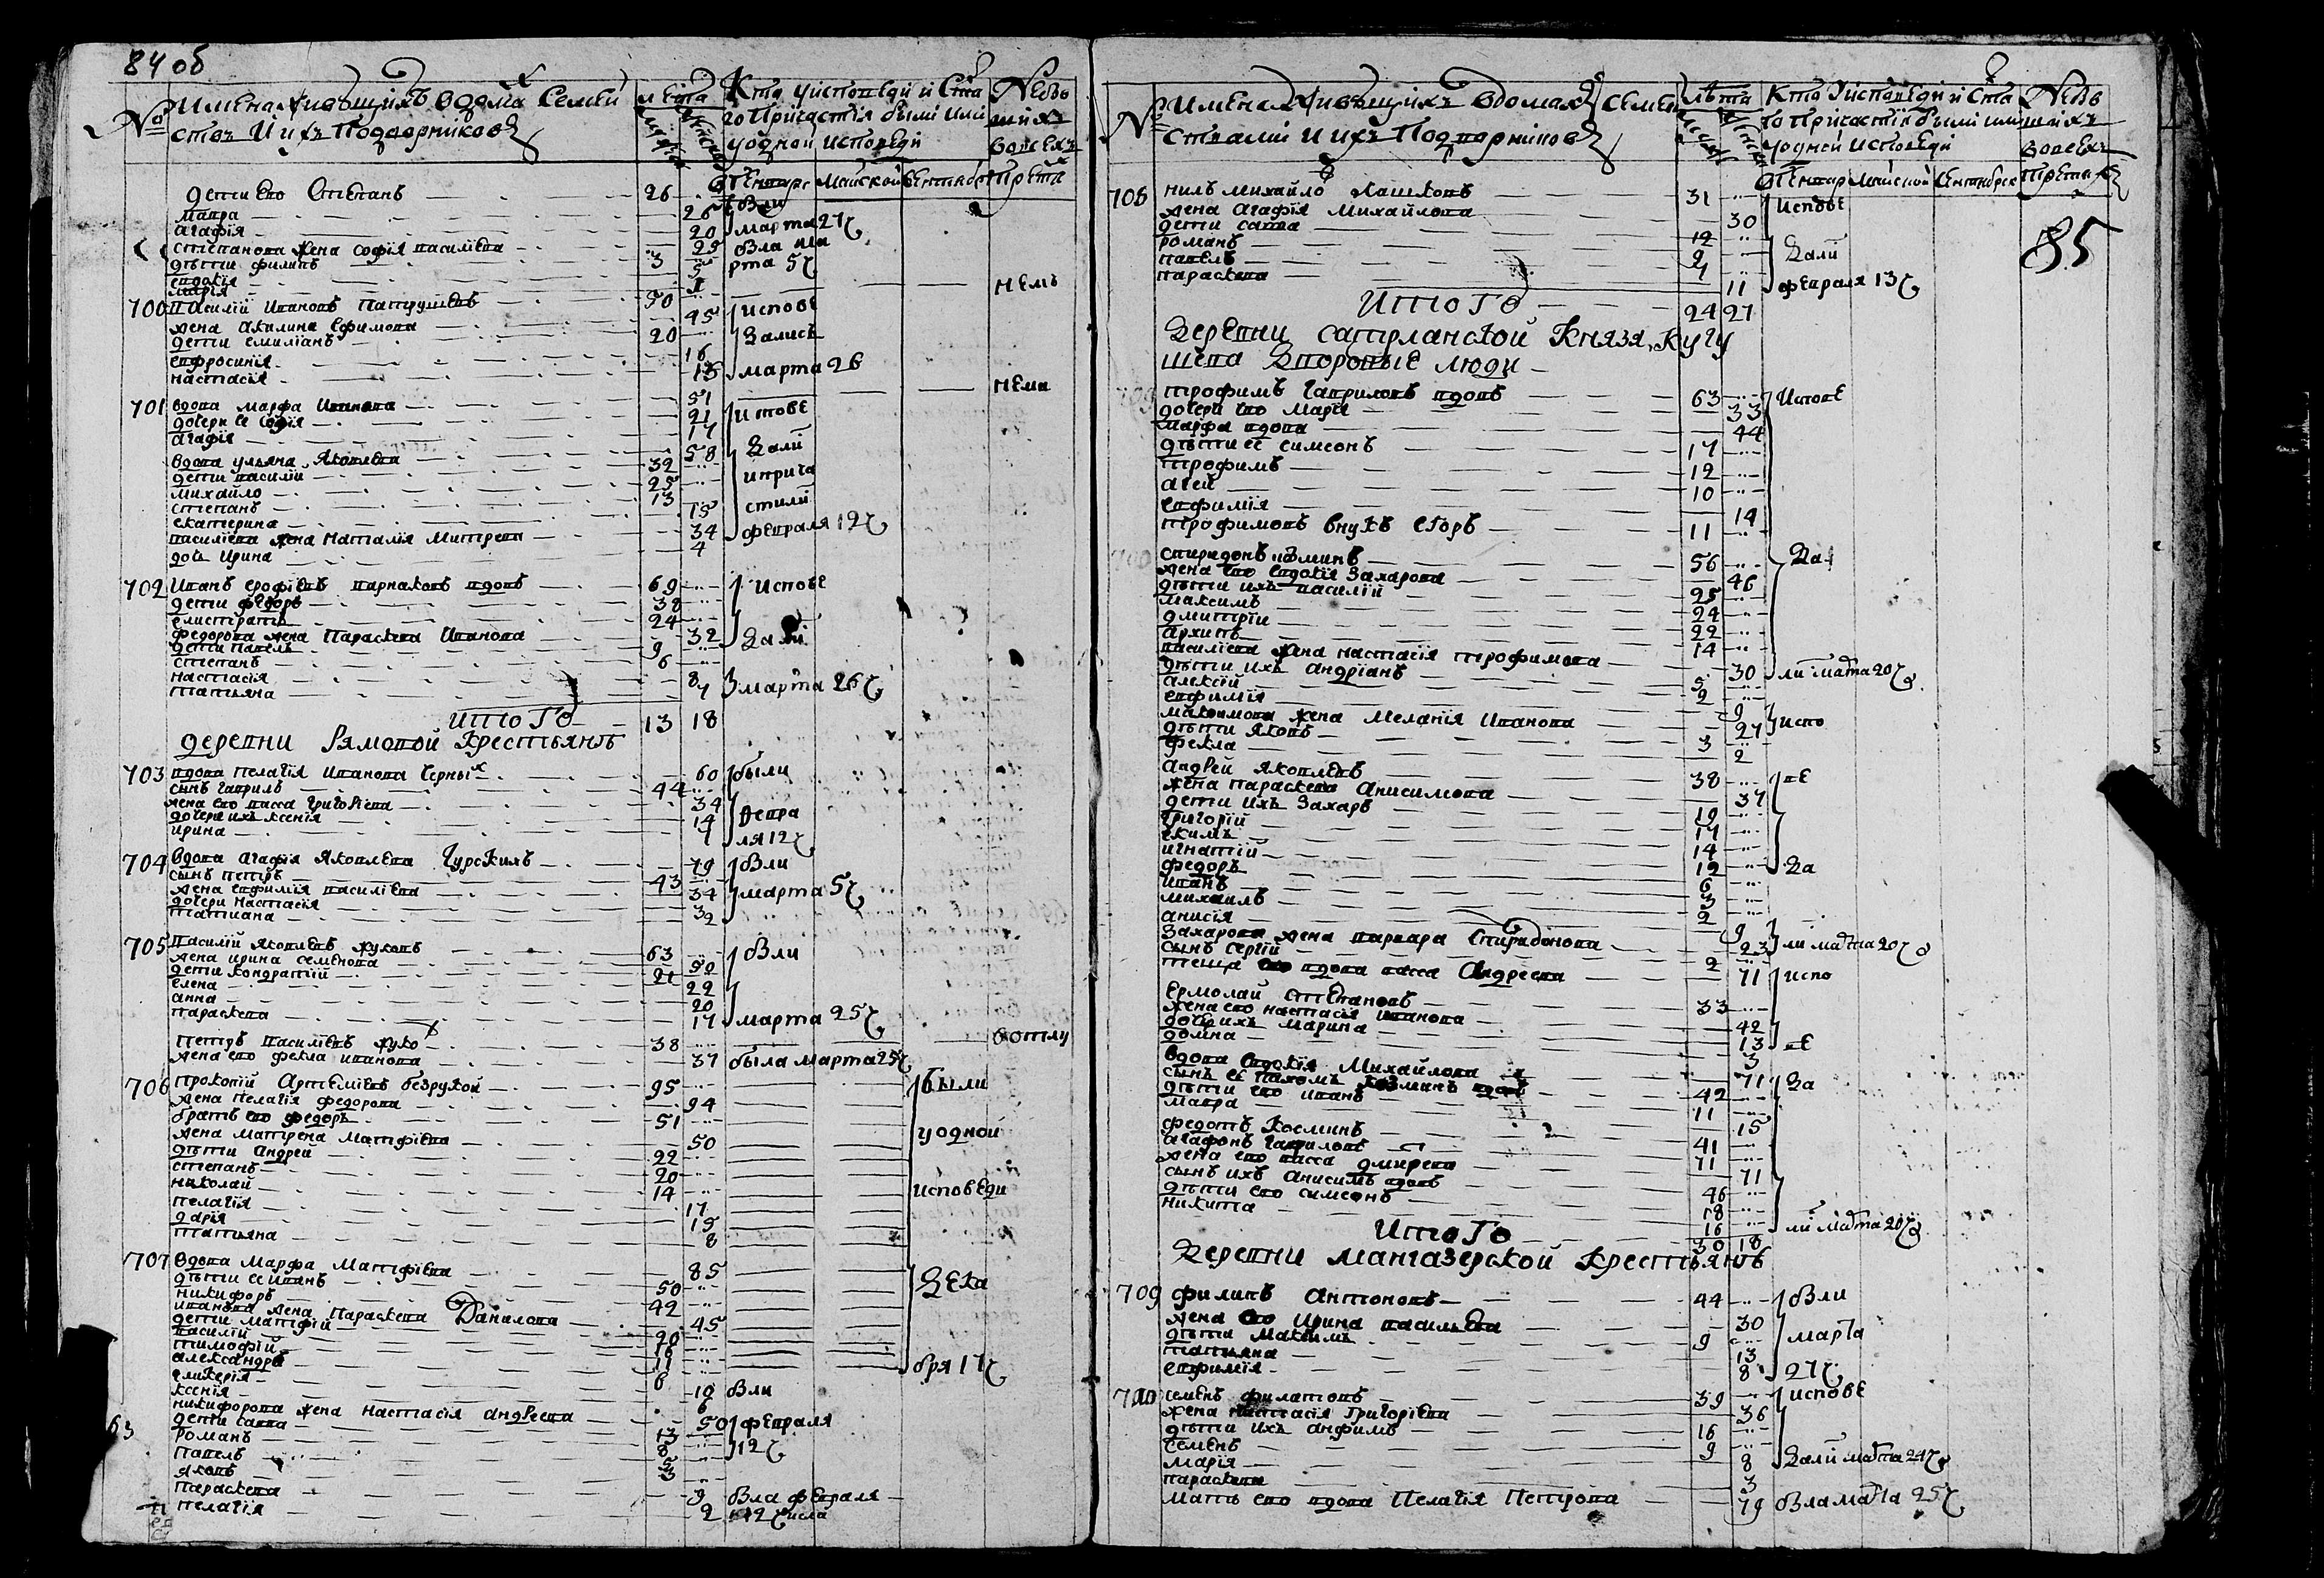 84 об
№ Имена живущихъ вдома Семей
ствъ И ихъ Подворниковъ
лета
Кто уисповеди и Свя
го Причастія были или
уодной исповеди
Небы
шихъ
детти Его Степанъ 26 были
мавра 26
агафія 20 марта 27
степанова жена софія василиева 25 была ма
дѣти филипъ 3 рта 5
евдокія 5
марія 1 нема
700 Василій Ивановъ Патрушевъ 50 исповѣ
жена Акилина Ефимова 45
дети емиліанъ 20 дались
евфросинія 16
настасія 13 марта 26
нема
701 вдова марфа Иванова 51 исповѣ
дочери ее софія 21
агафія 17
вдова ульяна Яковлева 58 дали
дети василій 32
михайло 25 иприча
степанъ 13
екатерина 15 стили
василиева жена наталія Митрева 34 февраля 12
доч Ирина 4
702 Иванъ ерофѣевъ варнаковъ вдовъ 69 исповѣ
дети федоръ 38
елистратъ 24
федорова жена Параскева Иванова 32 дали
дети павелъ 9
степанъ 6
настасія 8
татьяна 7 марта 26
итоГо 13 18
деревни Рямовой Крестьянъ
703 вдова пелагія иванова Черныхъ 60 были
сынъ гаврилъ 44
жена его васса григориева 34 февра
дочери ихъ ксенія 14
ирина 7 ля 12
704 вдова агафія Яковлева Гурскихъ 79 были
сынъ петръ 43
жена евфимія василиева 34 марта 5
дочери настасія 3
татиана 2
705 василій яковлевъ жуковъ 63 были
жена ирина семенова 50
дети кондратій 21
елена 22
анна 20
параскева 17 марта 25
петръ василиевъ жуко 38 вотлу
жена его фекла иванова 37 была марта 25
706 прокопій Артемиевъ безрукой 95 были
жена пелагія федорова 94
братъ его федоръ 51
жена матрена матфіева 50 уодной
дѣти андрей 22
степанъ 20
николай 14 исповеди
пелагія 17
дарія 15
татьяна 8
707 вдова Марфа Матфіева 85 дека
дѣти ее иванъ 50
никифоръ 42
иванова жена Параскева Данилова 45
дети матфій 20
василій 16
тимофій 11 бря 17
александръ 8
гликерія 10 были
ксенія 6
никифорова жена настасія андреева 50 февраля
дети савва 13
романъ 8 12
павелъ 5
яковъ 3
параскева 9 была февраля
пелагія 2 12 числа
№ Имена Живущихъ вдомахъ семей
ствами и ихъ Подворниковъ
лѣта
Кто Уисповеди и Свя
го Причастія были или
уодной исповеди
85
708 нилъ михайло Кашковъ 31 исповѣ
жена агафія михайлова 30
дети савва 12
романъ 9 дали
павелъ 4
параскева 11 февраля 13
ИтоГо 24 27
деревни сатрланской Князя Кугу
шева дворовые люди
трофимъ гавриловъ вдовъ 63 исповѣ
дочери его марія 33
марфа вдова 44
дѣти ее симеонъ 17
трофимъ 12
агей 10
евфимія 14
трофимовъ внукъ егоръ 11
спиридонъ фминъ 56 да
жена его евдокія захарова 46
дѣти ихъ василій 25
максимъ 24
дмитрій 22
архипъ 14
василиева жена настасія трофимова 30 ли мата 20
дѣти ихъ андріанъ 5
алексій 2
евфимія 9
максимова жена меланія иванова 27 испо
дѣти яковъ 3
фекла 2
андрей яковлевъ 38 ве
жена параскева анисимова 37
дети ихъ захаръ 19
григорій 17
екимъ 14
игнатій 12 да
федоръ 6
иванъ 3
михаилъ 2
анисія 9
захарова жена варвара спиридонова 23 ли мата 20
сынъ сергій 2
теща его вдова васса Андреева 71 испо
ермолай степановъ 33
жена его настасія иванова 42
дочери ихъ марина 13 ве
домна 3
вдова евдокія Михайлова 71 да
сынъ ее пахомъ козминъ вдовъ 42
дѣти его иванъ 11
мавра 15
федотъ Косминъ 41
агафонъ гавриловъ 71
жена его васса дмитрева 71
сынъ ихъ анисимъ вдовъ 46
дѣти его симеонъ 18
никита 16 ли мата 20
ИтоГо 30 18
деревни мангазерской Крестьянъ
709 филипъ антоновъ 44 были
жена его ирина васильева 30
дѣти максимъ 9 марта
татьяна 13
евфимія 8 27
семенъ филатовъ 39 исповѣ
жена настасія григориева 36
дѣти ихъ анфимъ 16
семенъ 9
марія 8 дали мата 24
параскева 3
мать его вдова пелагія петрова 79 была мата 25